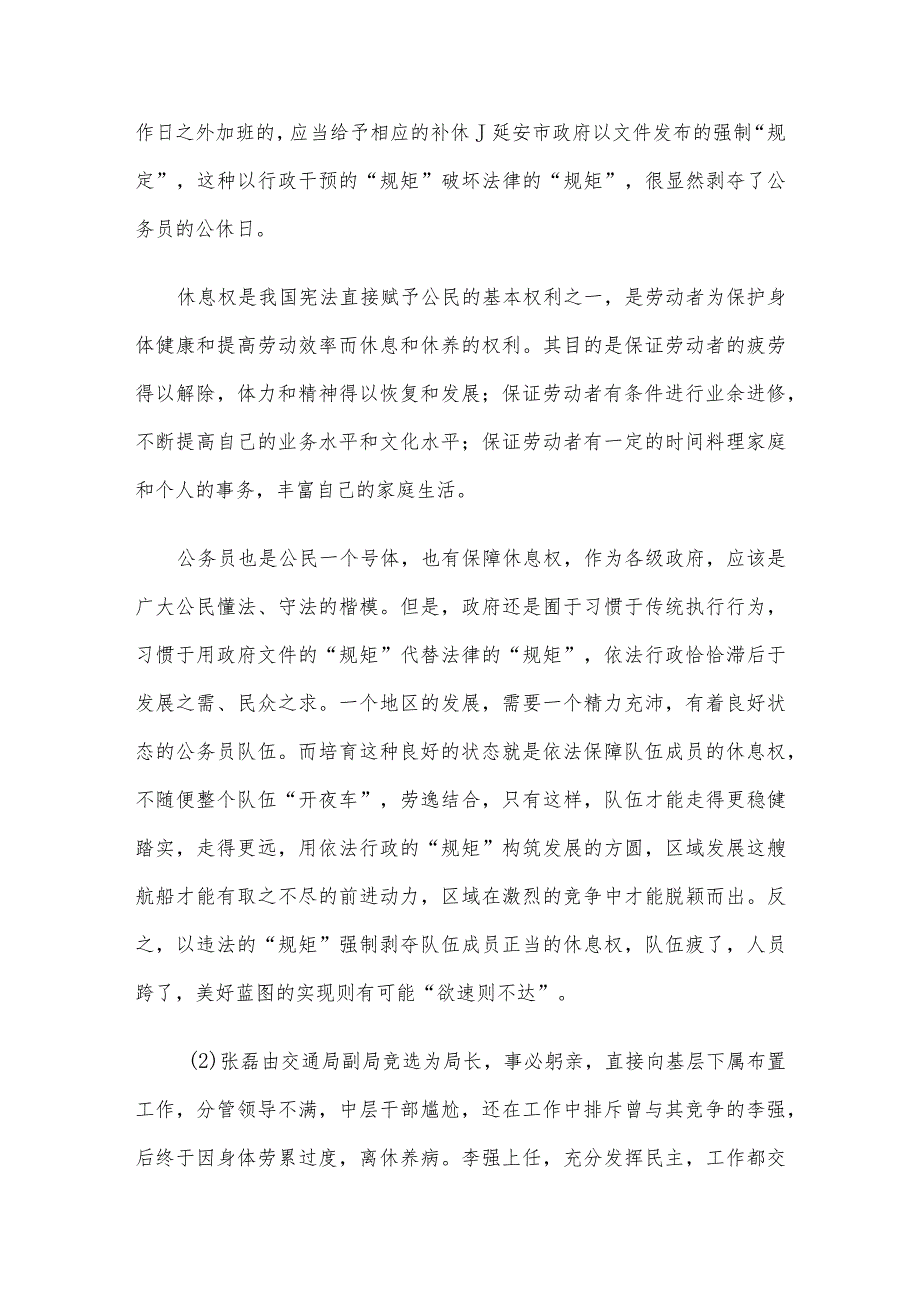 作日之外加班的,应当给予相应的补休J延安市政府以文件发布的强制“规
定”，这种以行政干预的“规矩”破坏法律的“规矩”，很显然剥夺了公
务员的公休日。
休息权是我国宪法直接赋予公民的基本权利之一，是劳动者为保护身
体健康和提高劳动效率而休息和休养的权利。其目的是保证劳动者的疲劳
得以解除，体力和精神得以恢复和发展；保证劳动者有条件进行业余进修，
不断提高自己的业务水平和文化水平；保证劳动者有一定的时间料理家庭
和个人的事务，丰富自己的家庭生活。
公务员也是公民一个号体，也有保障休息权，作为各级政府，应该是
广大公民懂法、守法的楷模。但是，政府还是囿于习惯于传统执行行为，
习惯于用政府文件的“规矩”代替法律的“规矩”，依法行政恰恰滞后于
发展之需、民众之求。一个地区的发展，需要一个精力充沛，有着良好状
态的公务员队伍。而培育这种良好的状态就是依法保障队伍成员的休息权，
不随便整个队伍“开夜车”，劳逸结合，只有这样，队伍才能走得更稳健
踏实，走得更远，用依法行政的“规矩”构筑发展的方圆，区域发展这艘
航船才能有取之不尽的前进动力，区域在激烈的竞争中才能脱颖而出。反
之，以违法的“规矩”强制剥夺队伍成员正当的休息权，队伍疲了，人员
跨了，美好蓝图的实现则有可能“欲速则不达”。
(2)张磊由交通局副局竞选为局长，事必躬亲，直接向基层下属布置
工作，分管领导不满，中层干部尴尬，还在工作中排斥曾与其竞争的李强，
后终于因身体劳累过度，离休养病。李强上任，充分发挥民主，工作都交